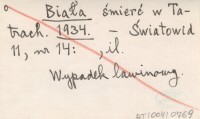 Biała śmierć w Ta-
trach. 1934. – Światowid
11, nr 14: , il.
Wypadek lawinowy.